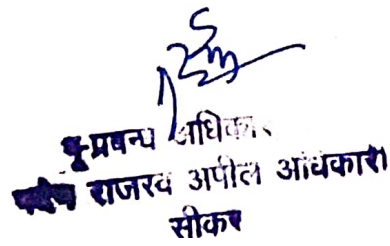 भू-प्रबन्ध अधिकार
पदेन राजस्व अपील अधिकारी
सीकर